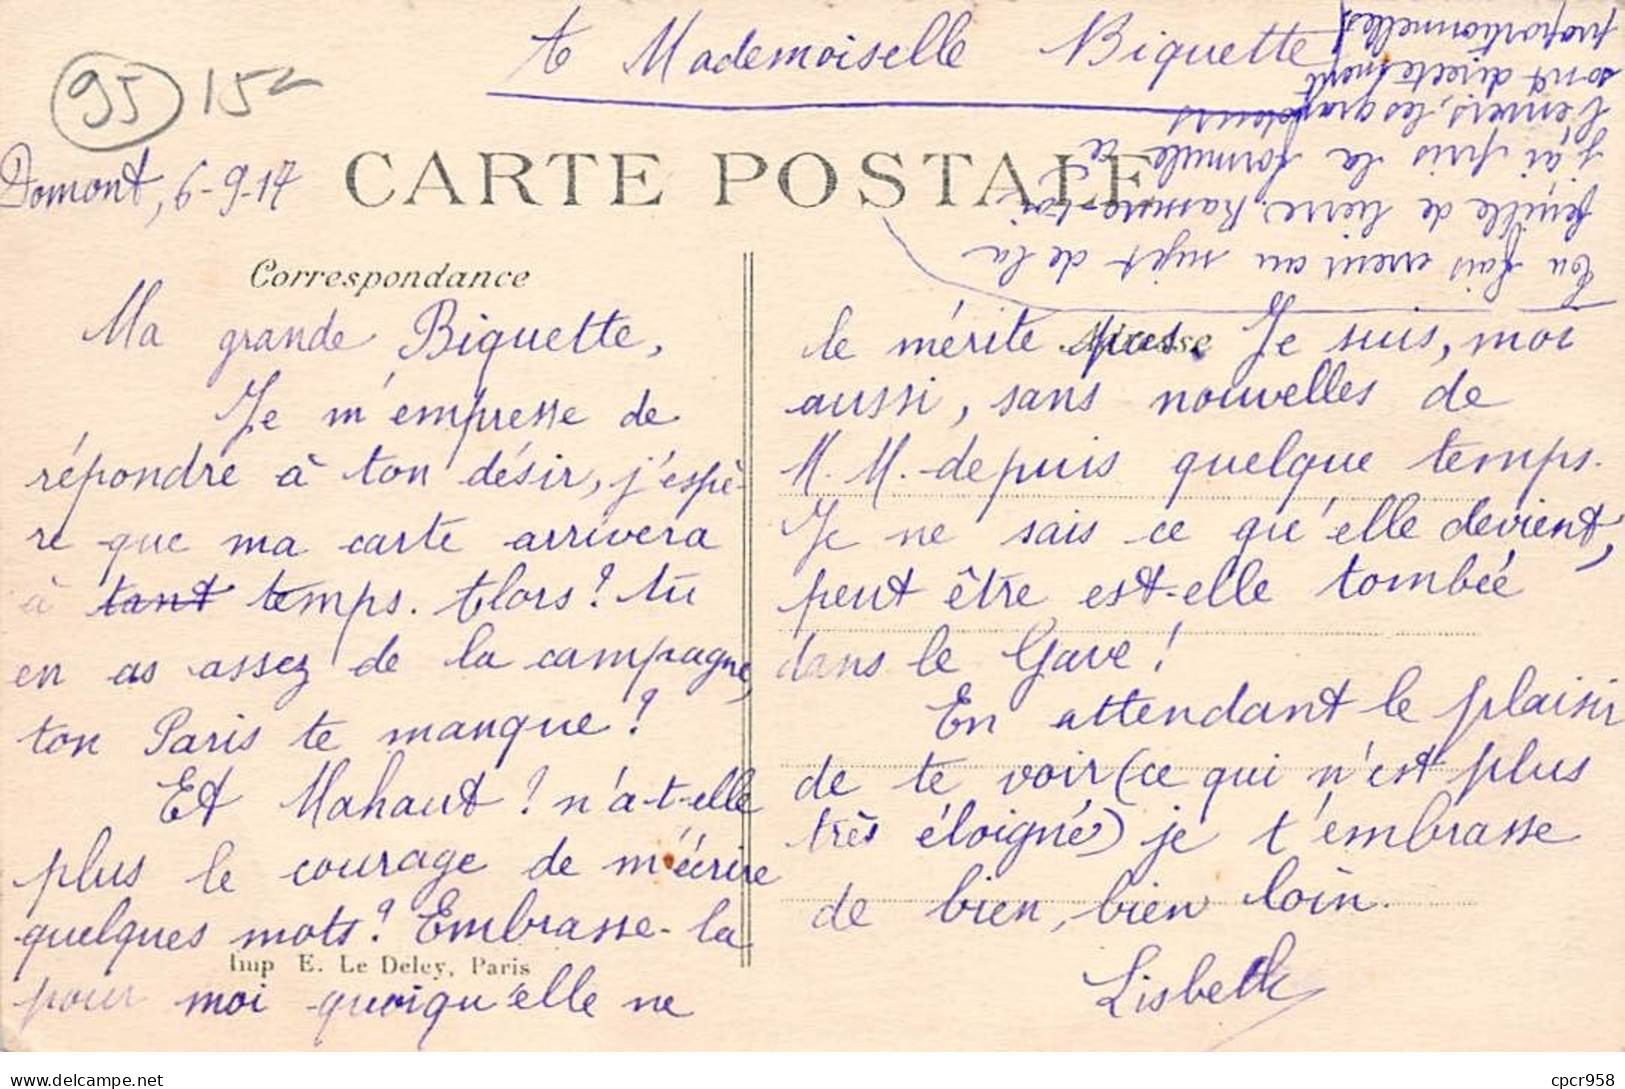 A Mademoiselle Biquette
95 15
Domont, 6-9-17
CARTE POSTALE
Correspondance
Adresse
Ma grande Biquette,
Je m'empresse de
répondre à ton désir, j'espè-
re que ma carte arrivera
à tant temps. Alors! tu
en as assez de la campagne,
ton Paris te manque?
Et Mahaut? n'a-t-elle
plus le courage de m'écrire
quelques mots? Embrasse-la
pour moi quoiqu'elle ne
le mérite pas. Je suis, moi
aussi, sans nouvelles de
M. M. depuis quelque temps.
Je ne sais ce qu'elle devient,
peut être est-elle tombée
dans le Gave!
En attendant le plaisir
de te voir (ce qui n'est plus
très éloigné) je t'embrasse
de bien, bien loin.
Lisbeth
Tu fais erreur au sujet de la
feuille de lierre. Rassure-toi
j'ai pris la formule à
l'envers, les grandeurs
sont directement
proportionnelles
Imp E. Le Deley, Paris
delcampe.net
cpcr958